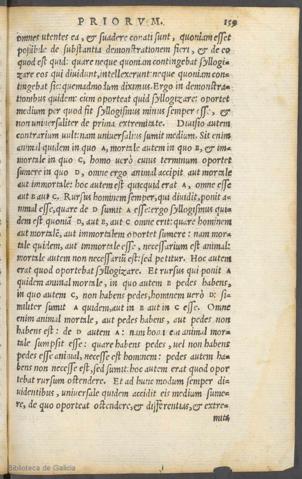 PRIORVM. 159
omnes utentes ea, & suadere conati sunt, quoniam esset
possibile de substantia demonstrationem fieri, & de eo
quod est quid: quare neque quoniam contingebat syllogi-
zare eos qui diuidunt, intellexerunt: neque quoniam con-
tingebat sic: quemadmodum diximus. Ergo in demonstra-
tionibus quidem: cùm oporteat quid syllogizare: oportet
medium per quod fit syllogismus minus semper esse, &
non uniuersaliter de prima extremitate. Diuisio autem
contrarium uult: nam uniuersalius sumit medium. Sit enim
animal quidem in quo A, mortale autem in quo B, & im-
mortale in quo C, homo uerò cuius terminum oportet
sumere in quo D, omne ergo animal accipit aut mortale
aut immortale: hoc autem est quicquid erat A, omne esse
aut B aut C. Rursus hominem semper, qui diuidit, ponit a-
nimal esse, quare de D sumit A esse: ergo syllogismus qui-
dem est quoniã D, aut B, aut C omne erit: quare hominem
aut mortalẽ, aut immortalem oportet sumere: nam mor-
tale quidem, aut immortale esse, necessarium est animal:
mortale autem non necessariũ est: sed petitur. Hoc autem
erat quod oportebat syllogizare. Et rursus qui ponit A
quidem animal mortale, in quo autem B pedes habens,
in quo autem C, non habens pedes, hominem uerò D: si-
militer sumit A quidem, aut in B aut in C esse. Omne
enim animal mortale, aut pedes habens, aut pedes non
habens est: de D autem A: nam hominem animal mor-
tale sumpsit esse: quare habens pedes, uel non habens
pedes esse animal, necesse est hominem: pedes autem ha-
bens non necesse est, sed sumit: hoc autem erat quod opor-
tebat rursum ostendere. Et ad hunc modum semper di-
uidentibus, uniuersale quidem accidit eis medium sume-
re, de quo oporteat ostendere, & differentias, & extre-
mita
Biblioteca de Galicia